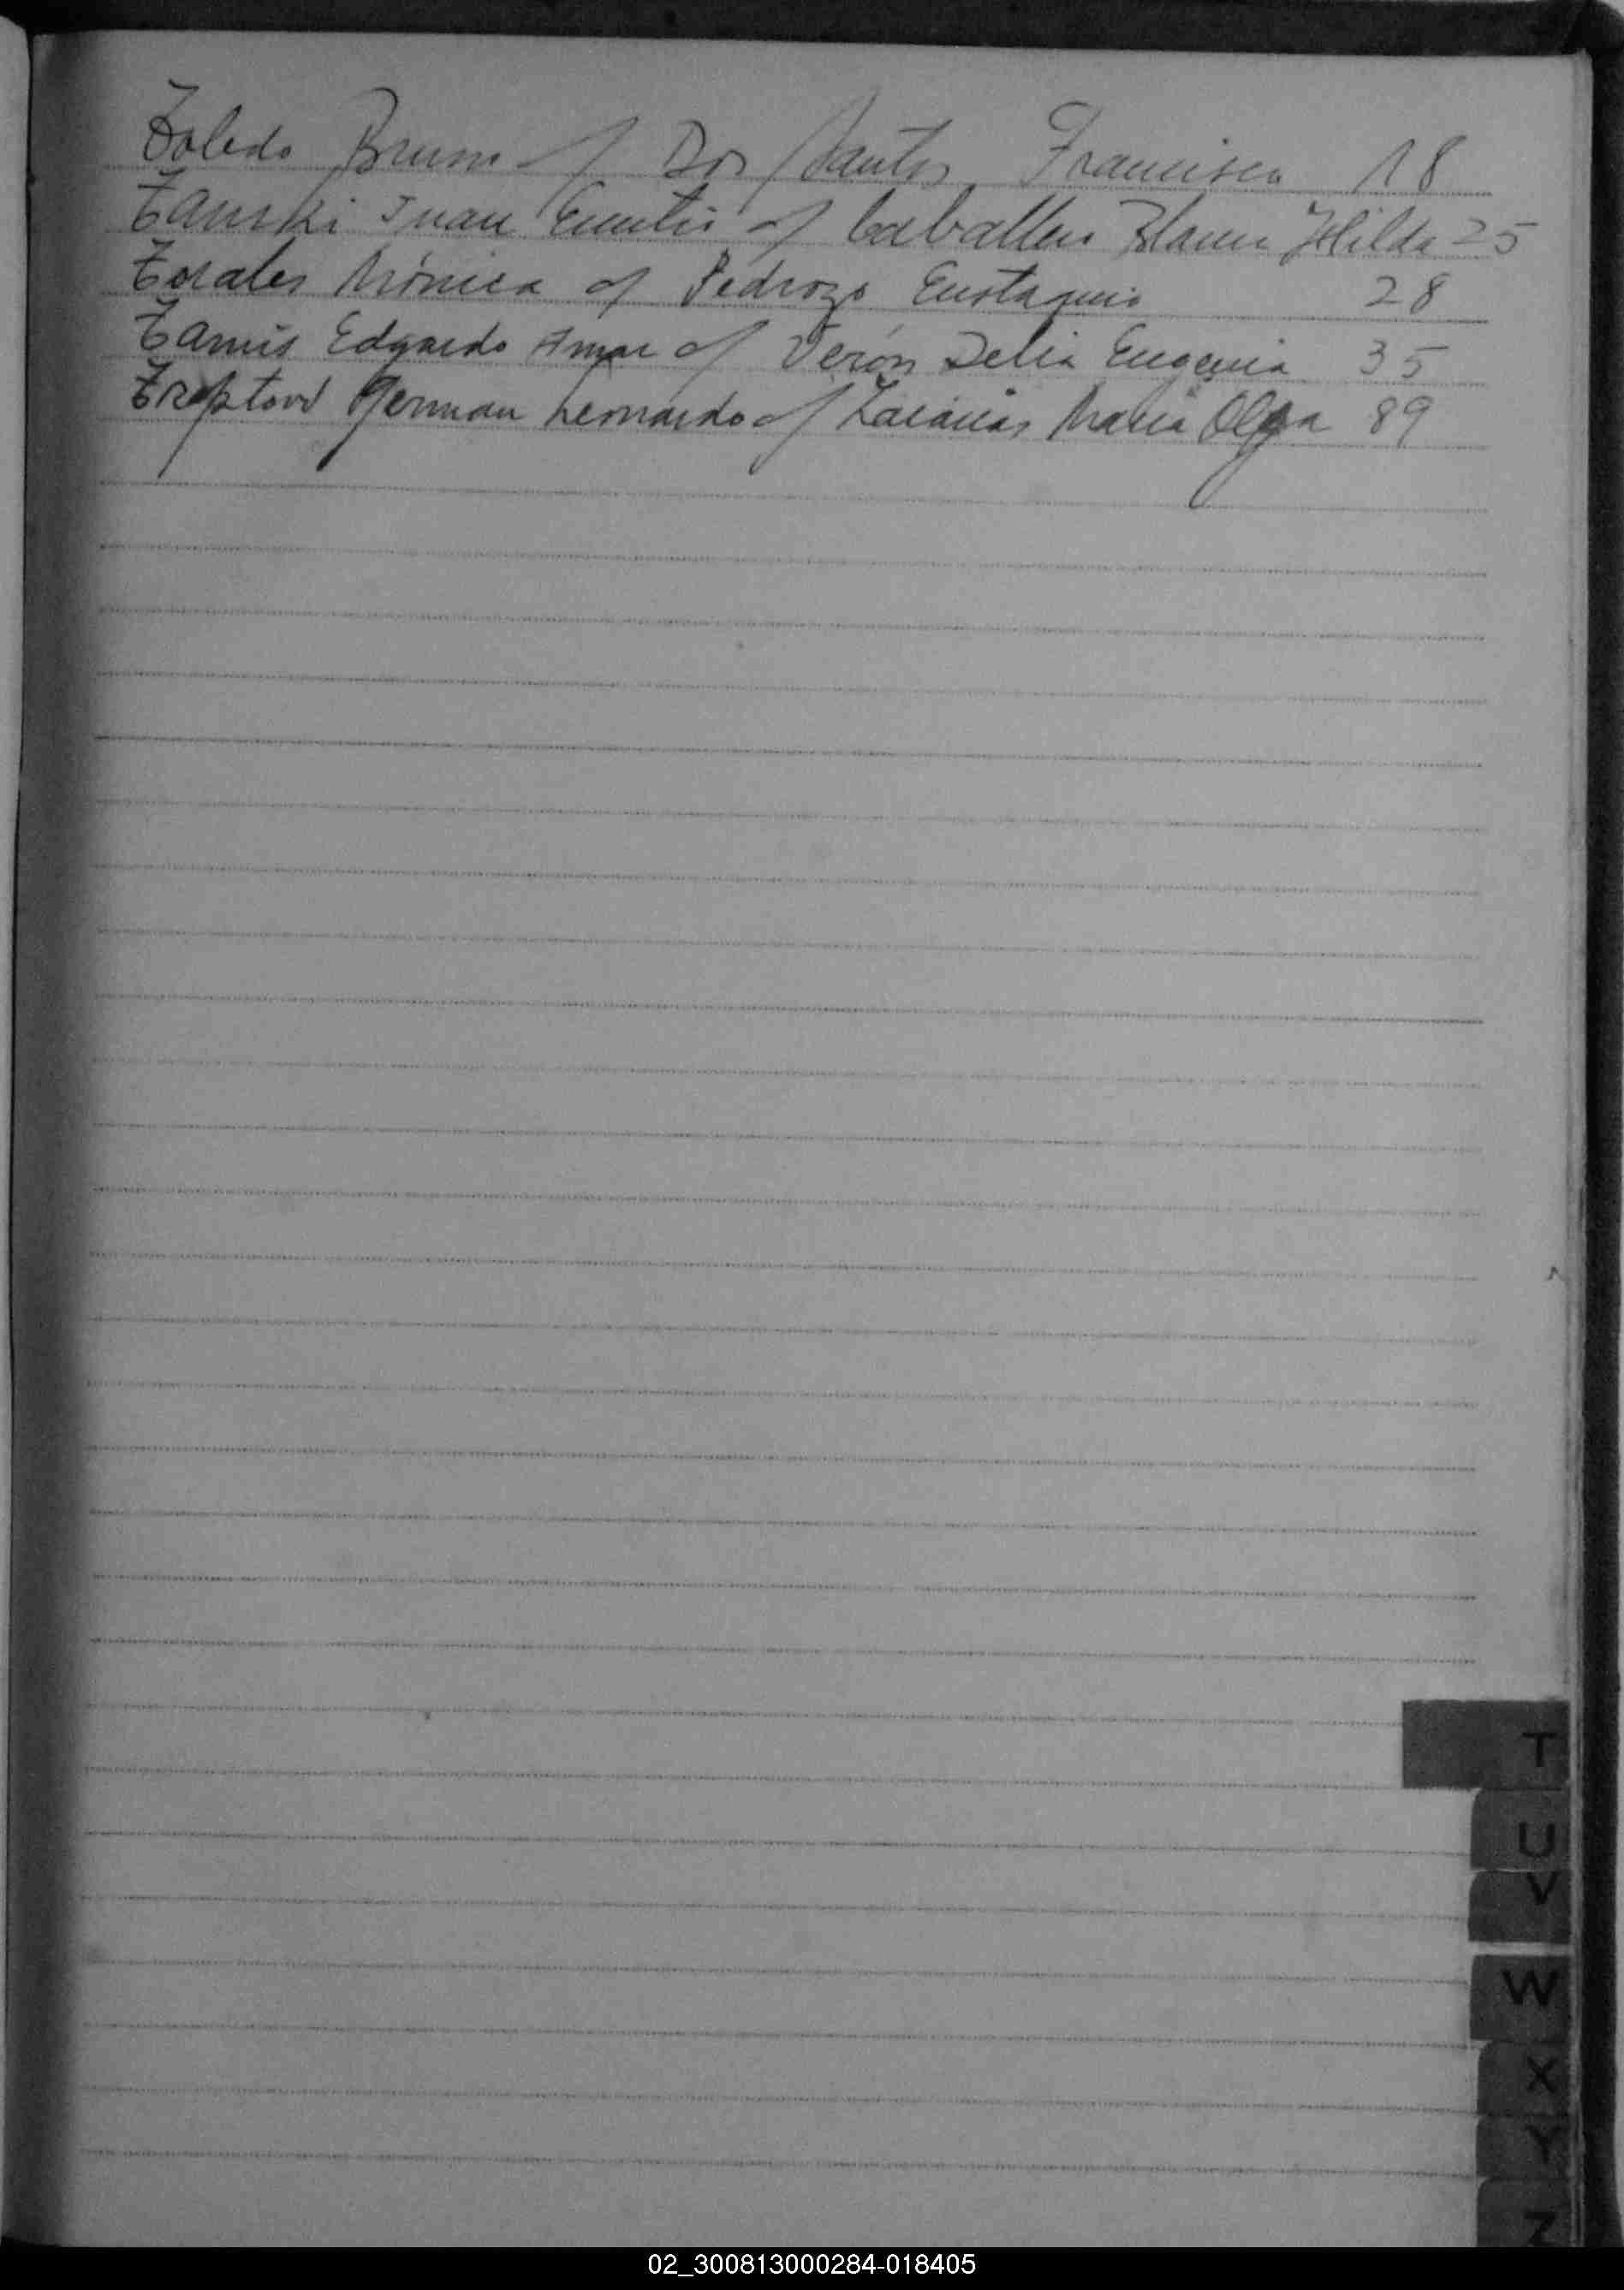 Toledo Bruno c/ Dos Santos Francisca 18
Tanski Juan Emilio c/ Caballero Blanca Hilda 25
Torales Mónica c/ Pedrozo Eustaquio 28
Edgardo Omar c/ Verón Delia Eugenia 35
Treptow German Leonardo c/ Zacarías María Olga 89
T
U
V
W
X
Y
Z
02_300813000284-018405